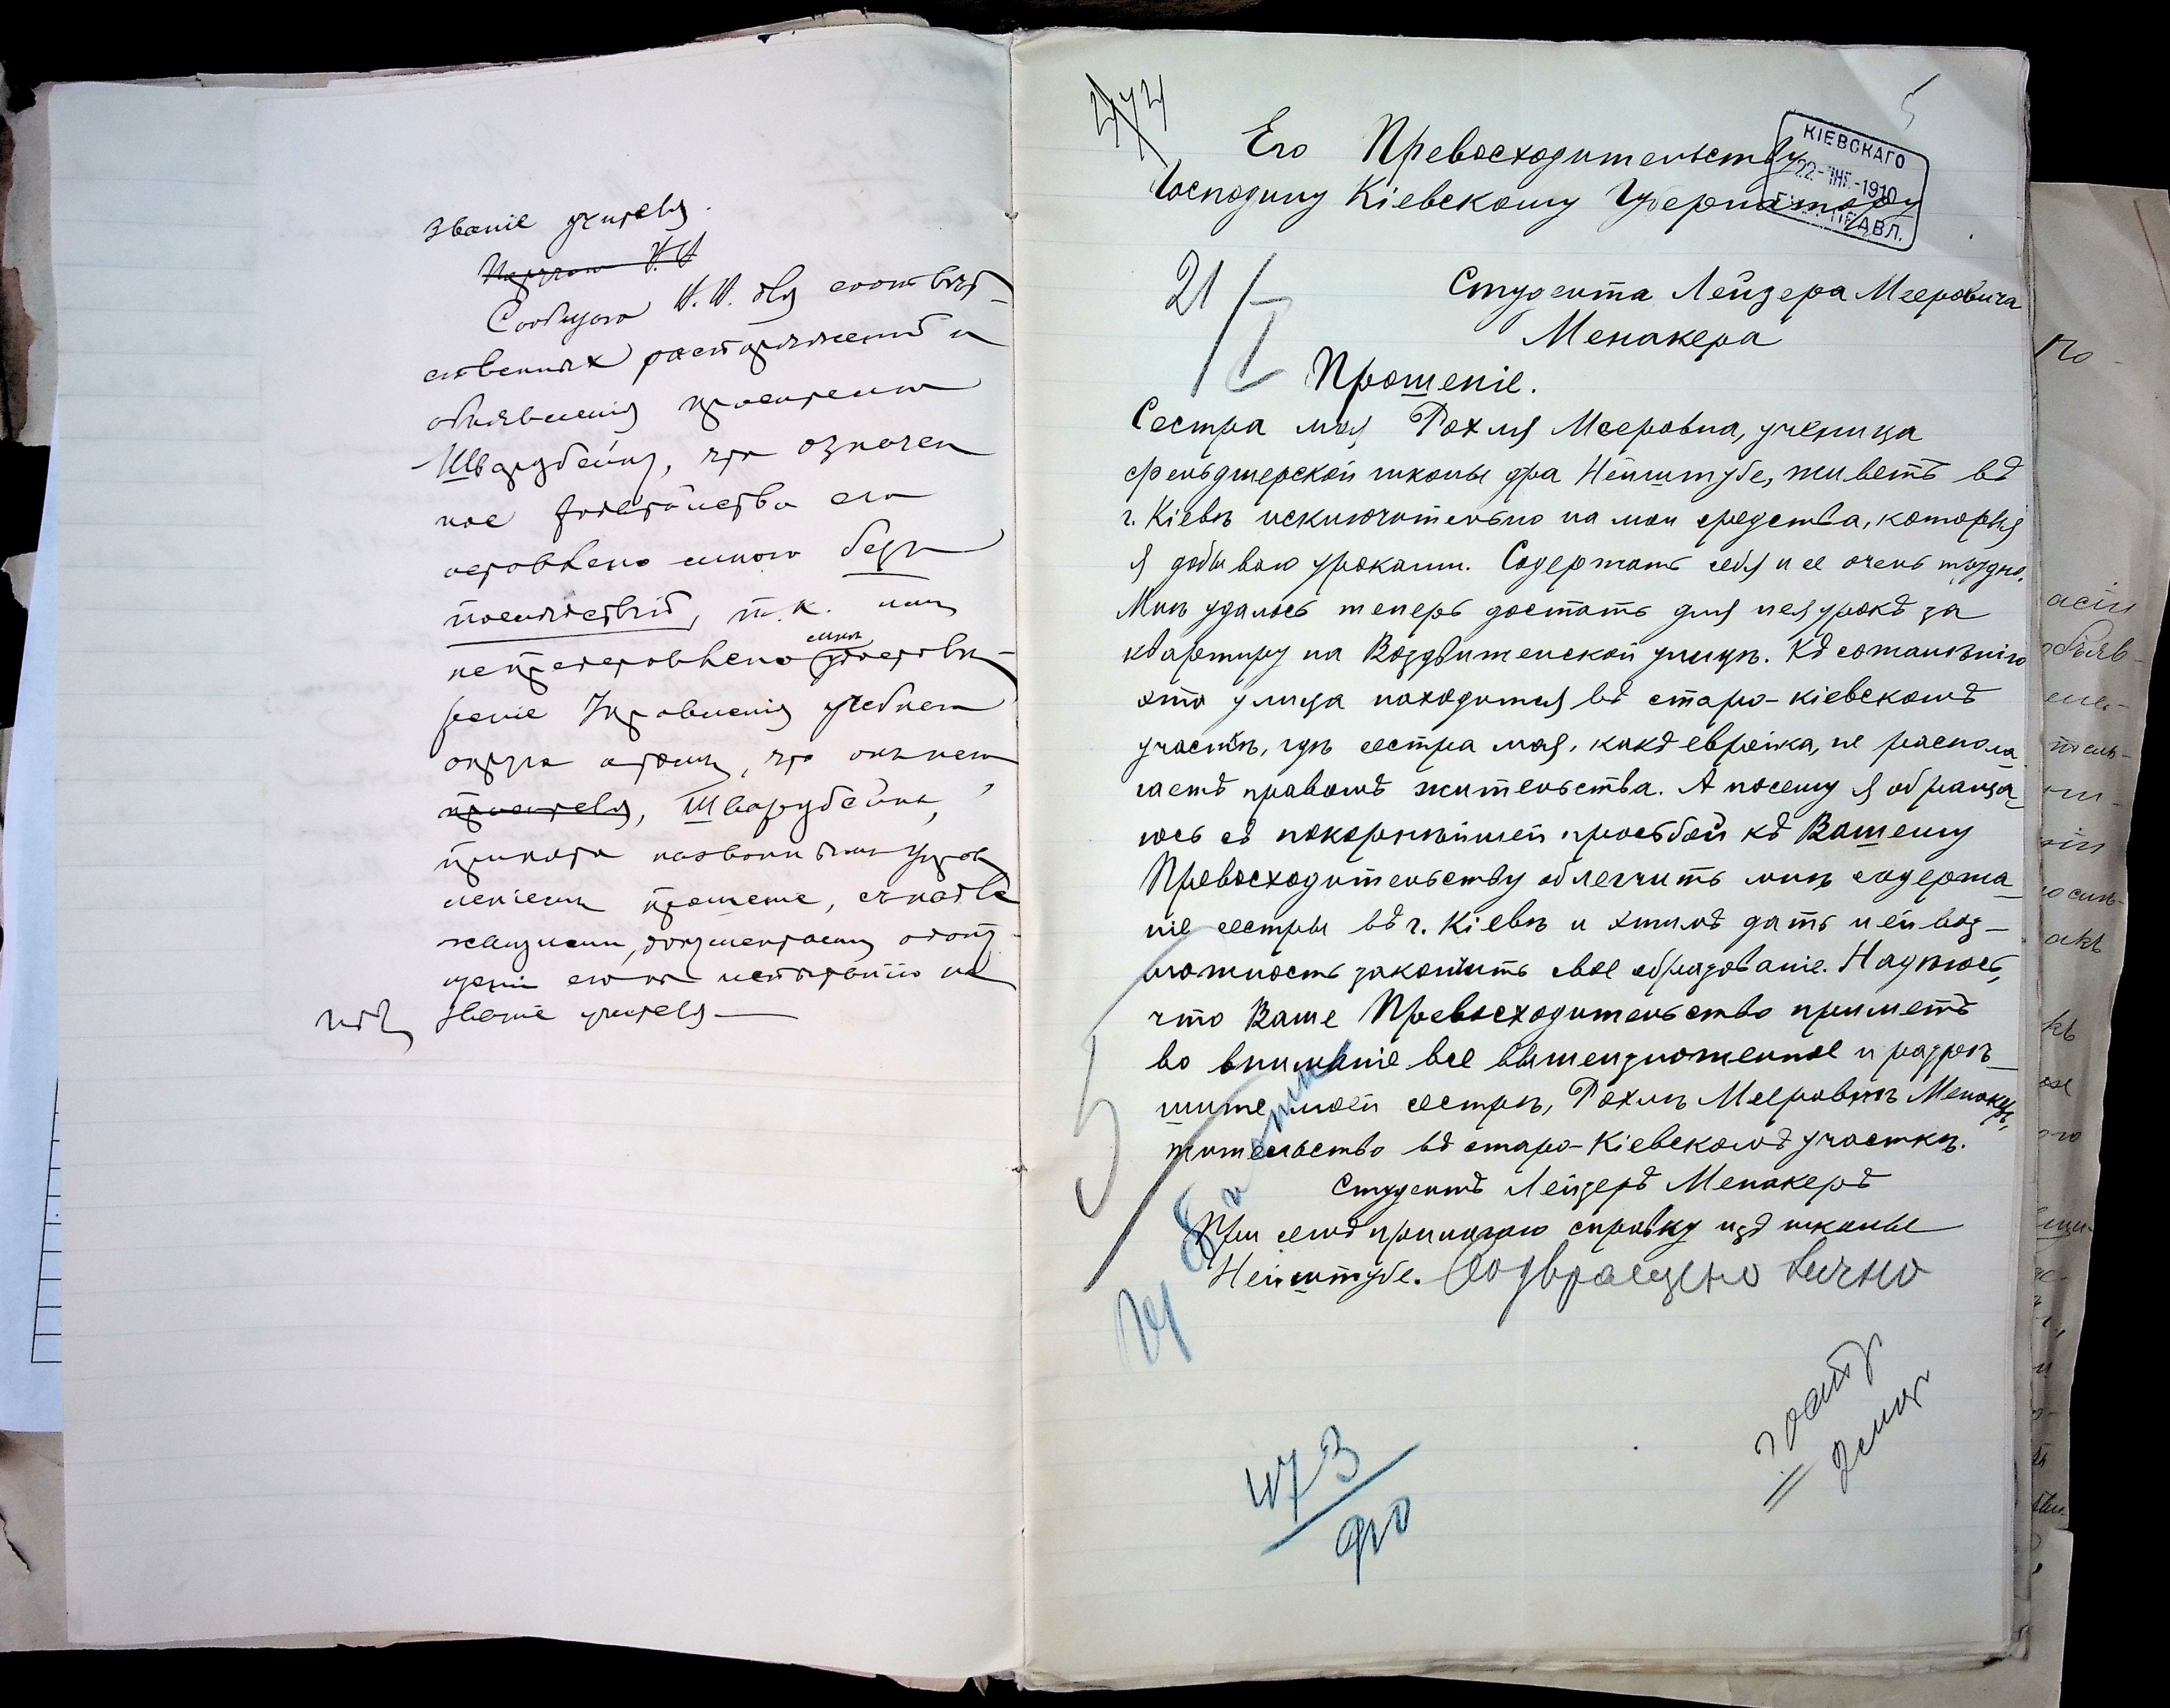 званіе учителя.
Сообщаю К. П. для соотвѣт-
ственныхъ распоряженій и
объявленія просителю
Шварцбейну, что означен
ное ходатайство его
оставлено мною безъ
послѣдствій, т. к. имъ
непредставлено мнѣ удостовѣ-
реніе Управленія учебнаго
округа о томъ, что онъ имъ
просителя, Шварцбейнъ,
принято названнымъ Управ
леніемъ прошеніе, съ надле
жащими документами, о допу-
щеніи его къ испытанію на
званіе учителя
474
5
Его Превосходительству
Господину Кіевскому Губернатору
КІЕВСКАГО
22- -1910
ПРАВЛ.
21/I
Студента Лейзера Мееровича
Менакера
Прошеніе.
Сестра моя Рохля Мееровна, ученица
фельдшерской школы д-ра Нейштубе, живетъ въ
г. Кіевѣ исключительно на мои средства, которыя
я добываю уроками. Содержать себя и ее очень трудно.
Мнѣ удалось теперь достать для нея урокъ за
квартиру на Воздвиженской улицѣ. Къ сожалѣнію
эта улица находится въ старо-кіевскомъ
участкѣ, гдѣ сестра моя, какъ еврейка, не распола
гаетъ правомъ жительства. А посему я обраща
юсь съ покорнѣйшей просьбой къ Вашему
Превосходительству облегчить мнѣ содержа
ніе сестры въ г. Кіевѣ и этимъ дать и ей воз-
можность закончить свое образованіе. Надѣюсь,
что Ваше Превосходительство приметъ
во вниманіе все вышеизложенное и разрѣ-
шите моей сестрѣ, Рохлѣ Мееровнѣ Менакеръ,
жительство въ старо-Кіевскомъ участкѣ.
Студентъ Лейзеръ Менакеръ
При семъ прилагаю справку изъ школы
Нейштубе. Возвращено лично
473
910